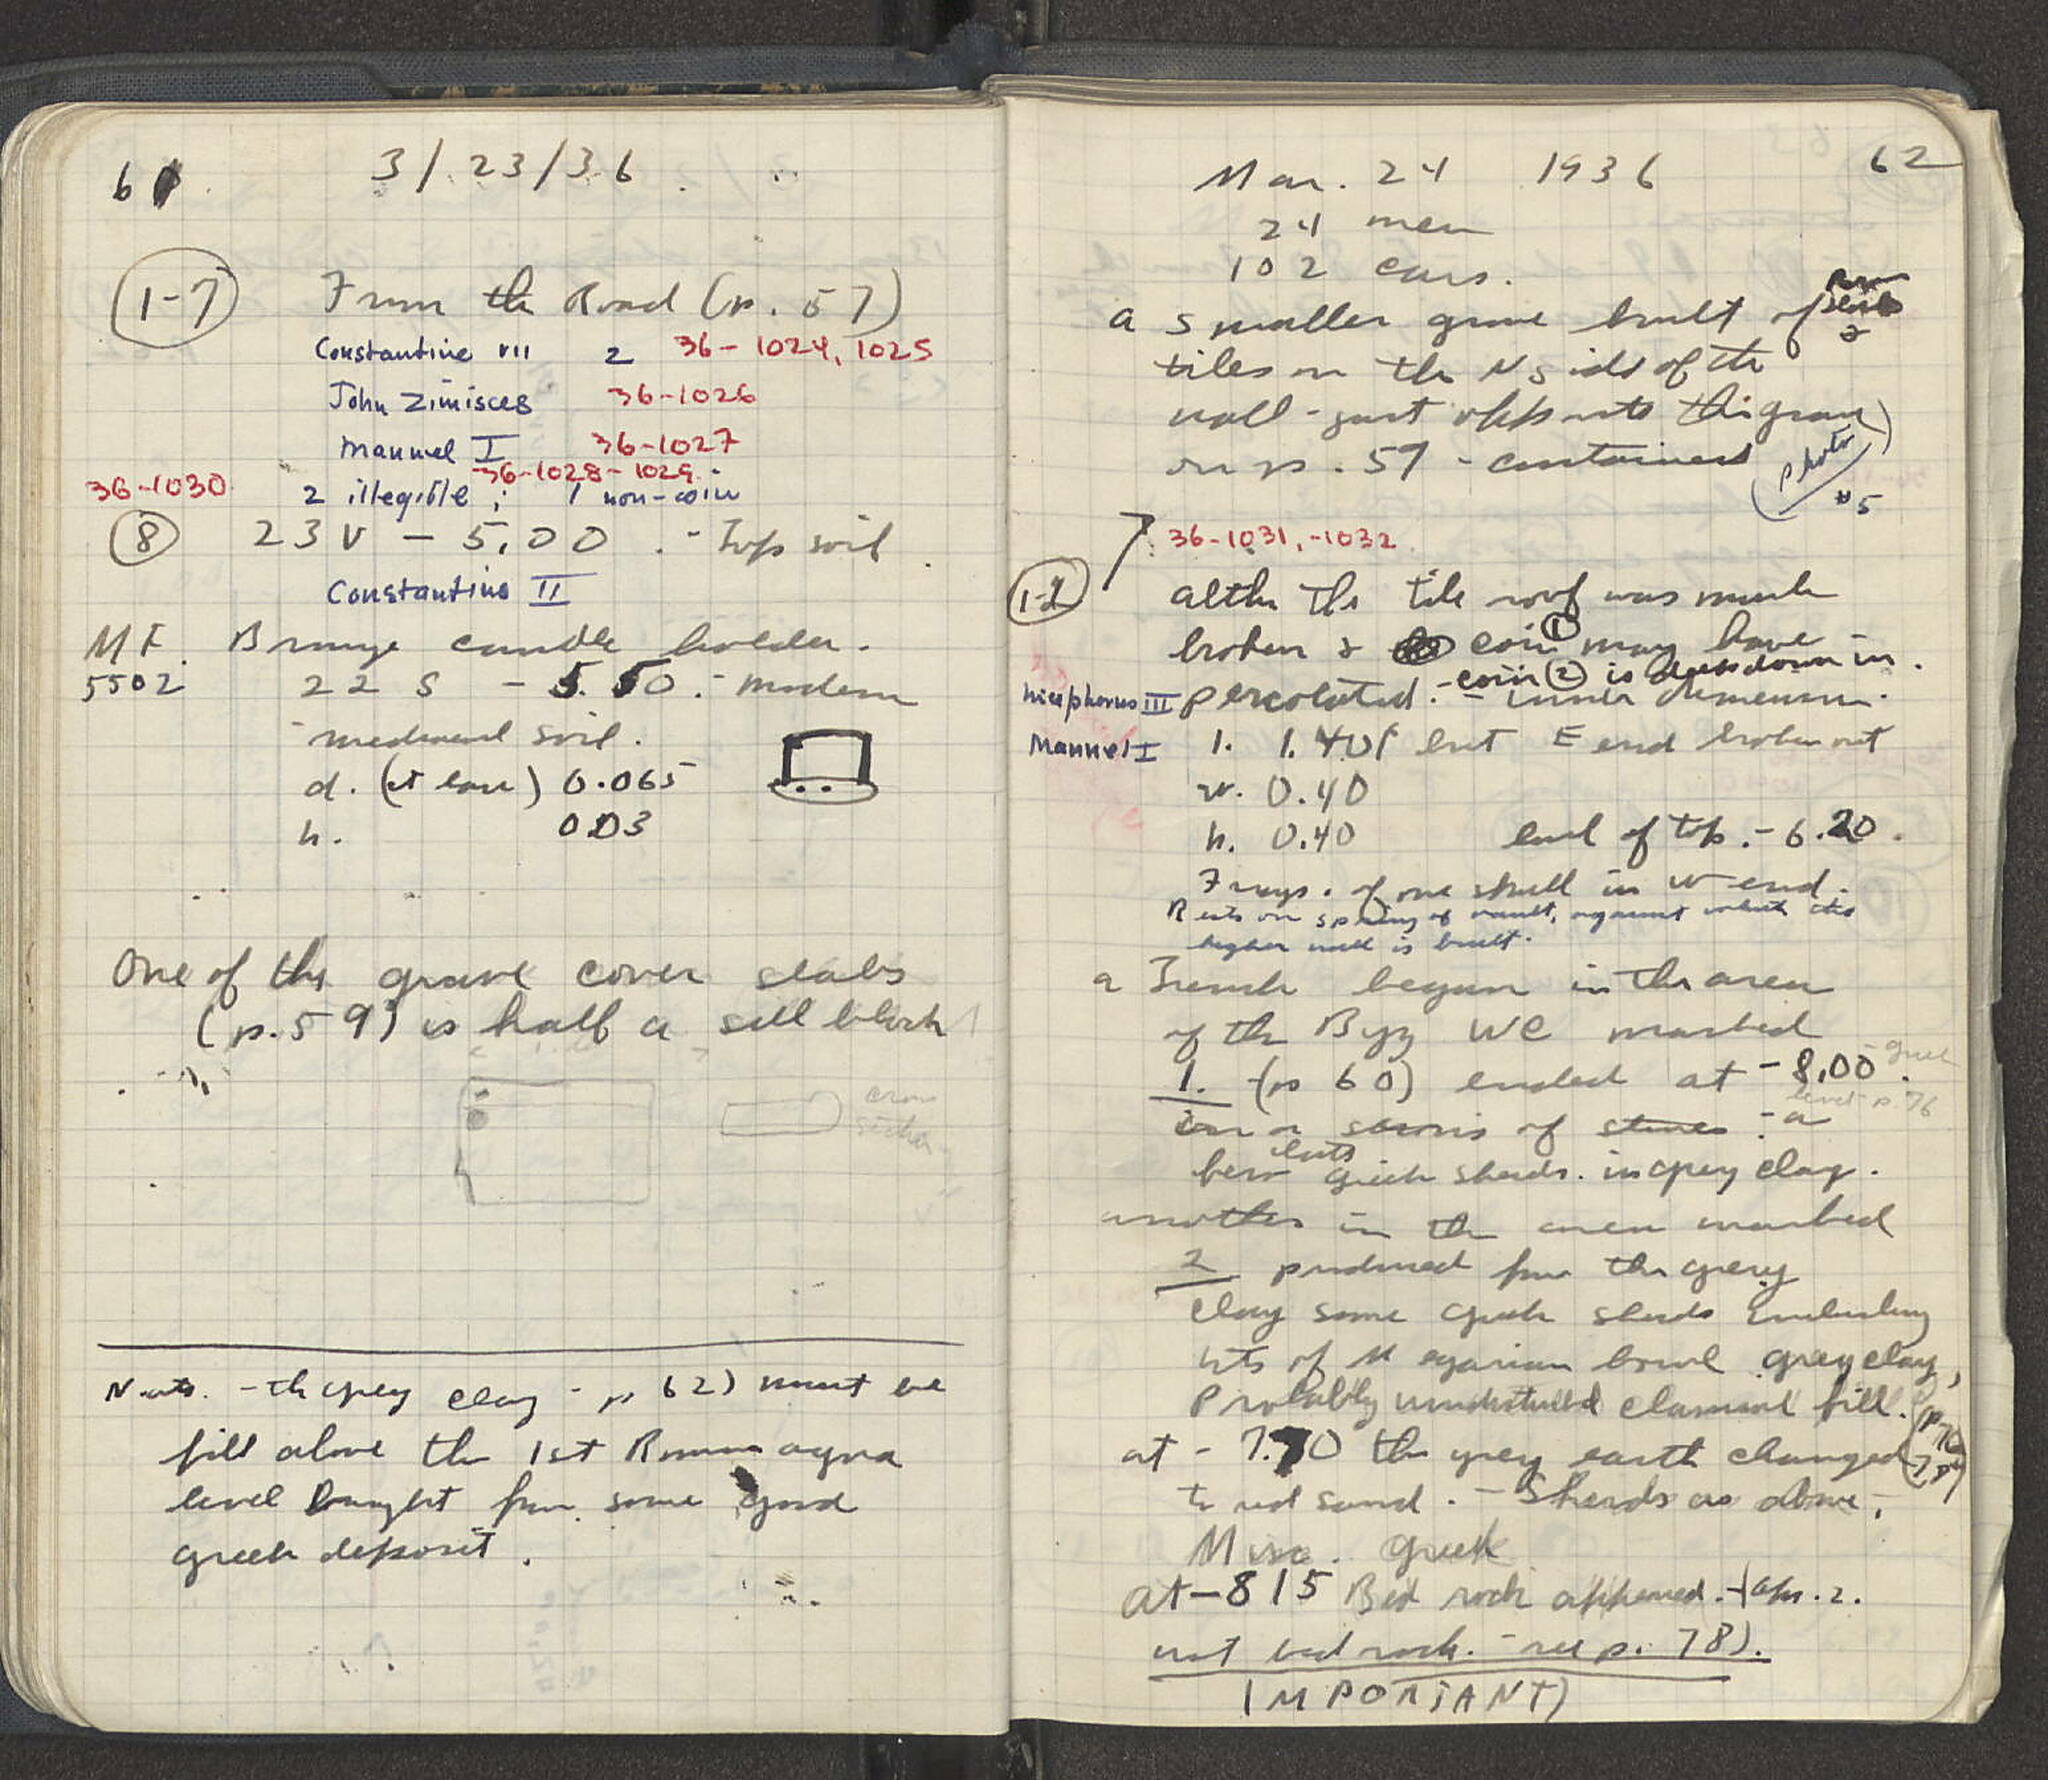 61
3/23/36
1-7 From the Road (p. 57)
Constantine VII 2 36-1024, 1025
John Zimisces 36-1026
Manuel I 36-1027
36-1028-1029.
36-1030 2 illegible ; 1 non-coin
8 23 V - 5,00 . - Top soil .
Constantius II
MF. Bronze candle holder.
5502 22 S - 5.50. - modern
mediaeval soil.
d. (at base) 0.065
h. 0.03
One of the grave cover slabs
(p. 59) is half a sill block
cross
section
Note. - the grey clay - p 62) must be
fill above the 1st Roman agora
level brought from some good
greek deposit.
62
Mar. 24 1936
24 men
102 cars.
a smaller grave built of
&
tiles on the N side of the
wall - just opposite the grave
on p. 59 - contained
(Photo #5)
36-1031, -1032
1-2 altho the tile roof was much
broken & coin ① may have
coin ② is down in.
Nicephorus III percolated. - inner dimension.
Manuel I l. 1.40 but E end broken out
w. 0.40
h. 0.40 level of top. - 6.20.
Frags. of one skull in W end.
Rests on spring of vault, against which the
higher wall is built.
a Trench begun in the area
of the Byz WC marked
1. (p 60) ended at - 8,00.
- greek
level p. 76
on a series of stones : - a
few greek sherds. in grey clay.
another in the area marked
2 produced from the grey
clay some greek sherds including
bits of Megarian bowl grey clay,
Probably undisturbed classical fill.
at - 7.70 the grey earth changed
to red sand. - Sherds as above,
Misc. greek
at - 815 Bed rock appeared. - (Apr. 2.
not bed rock. - see p. 78).
IMPORTANT)